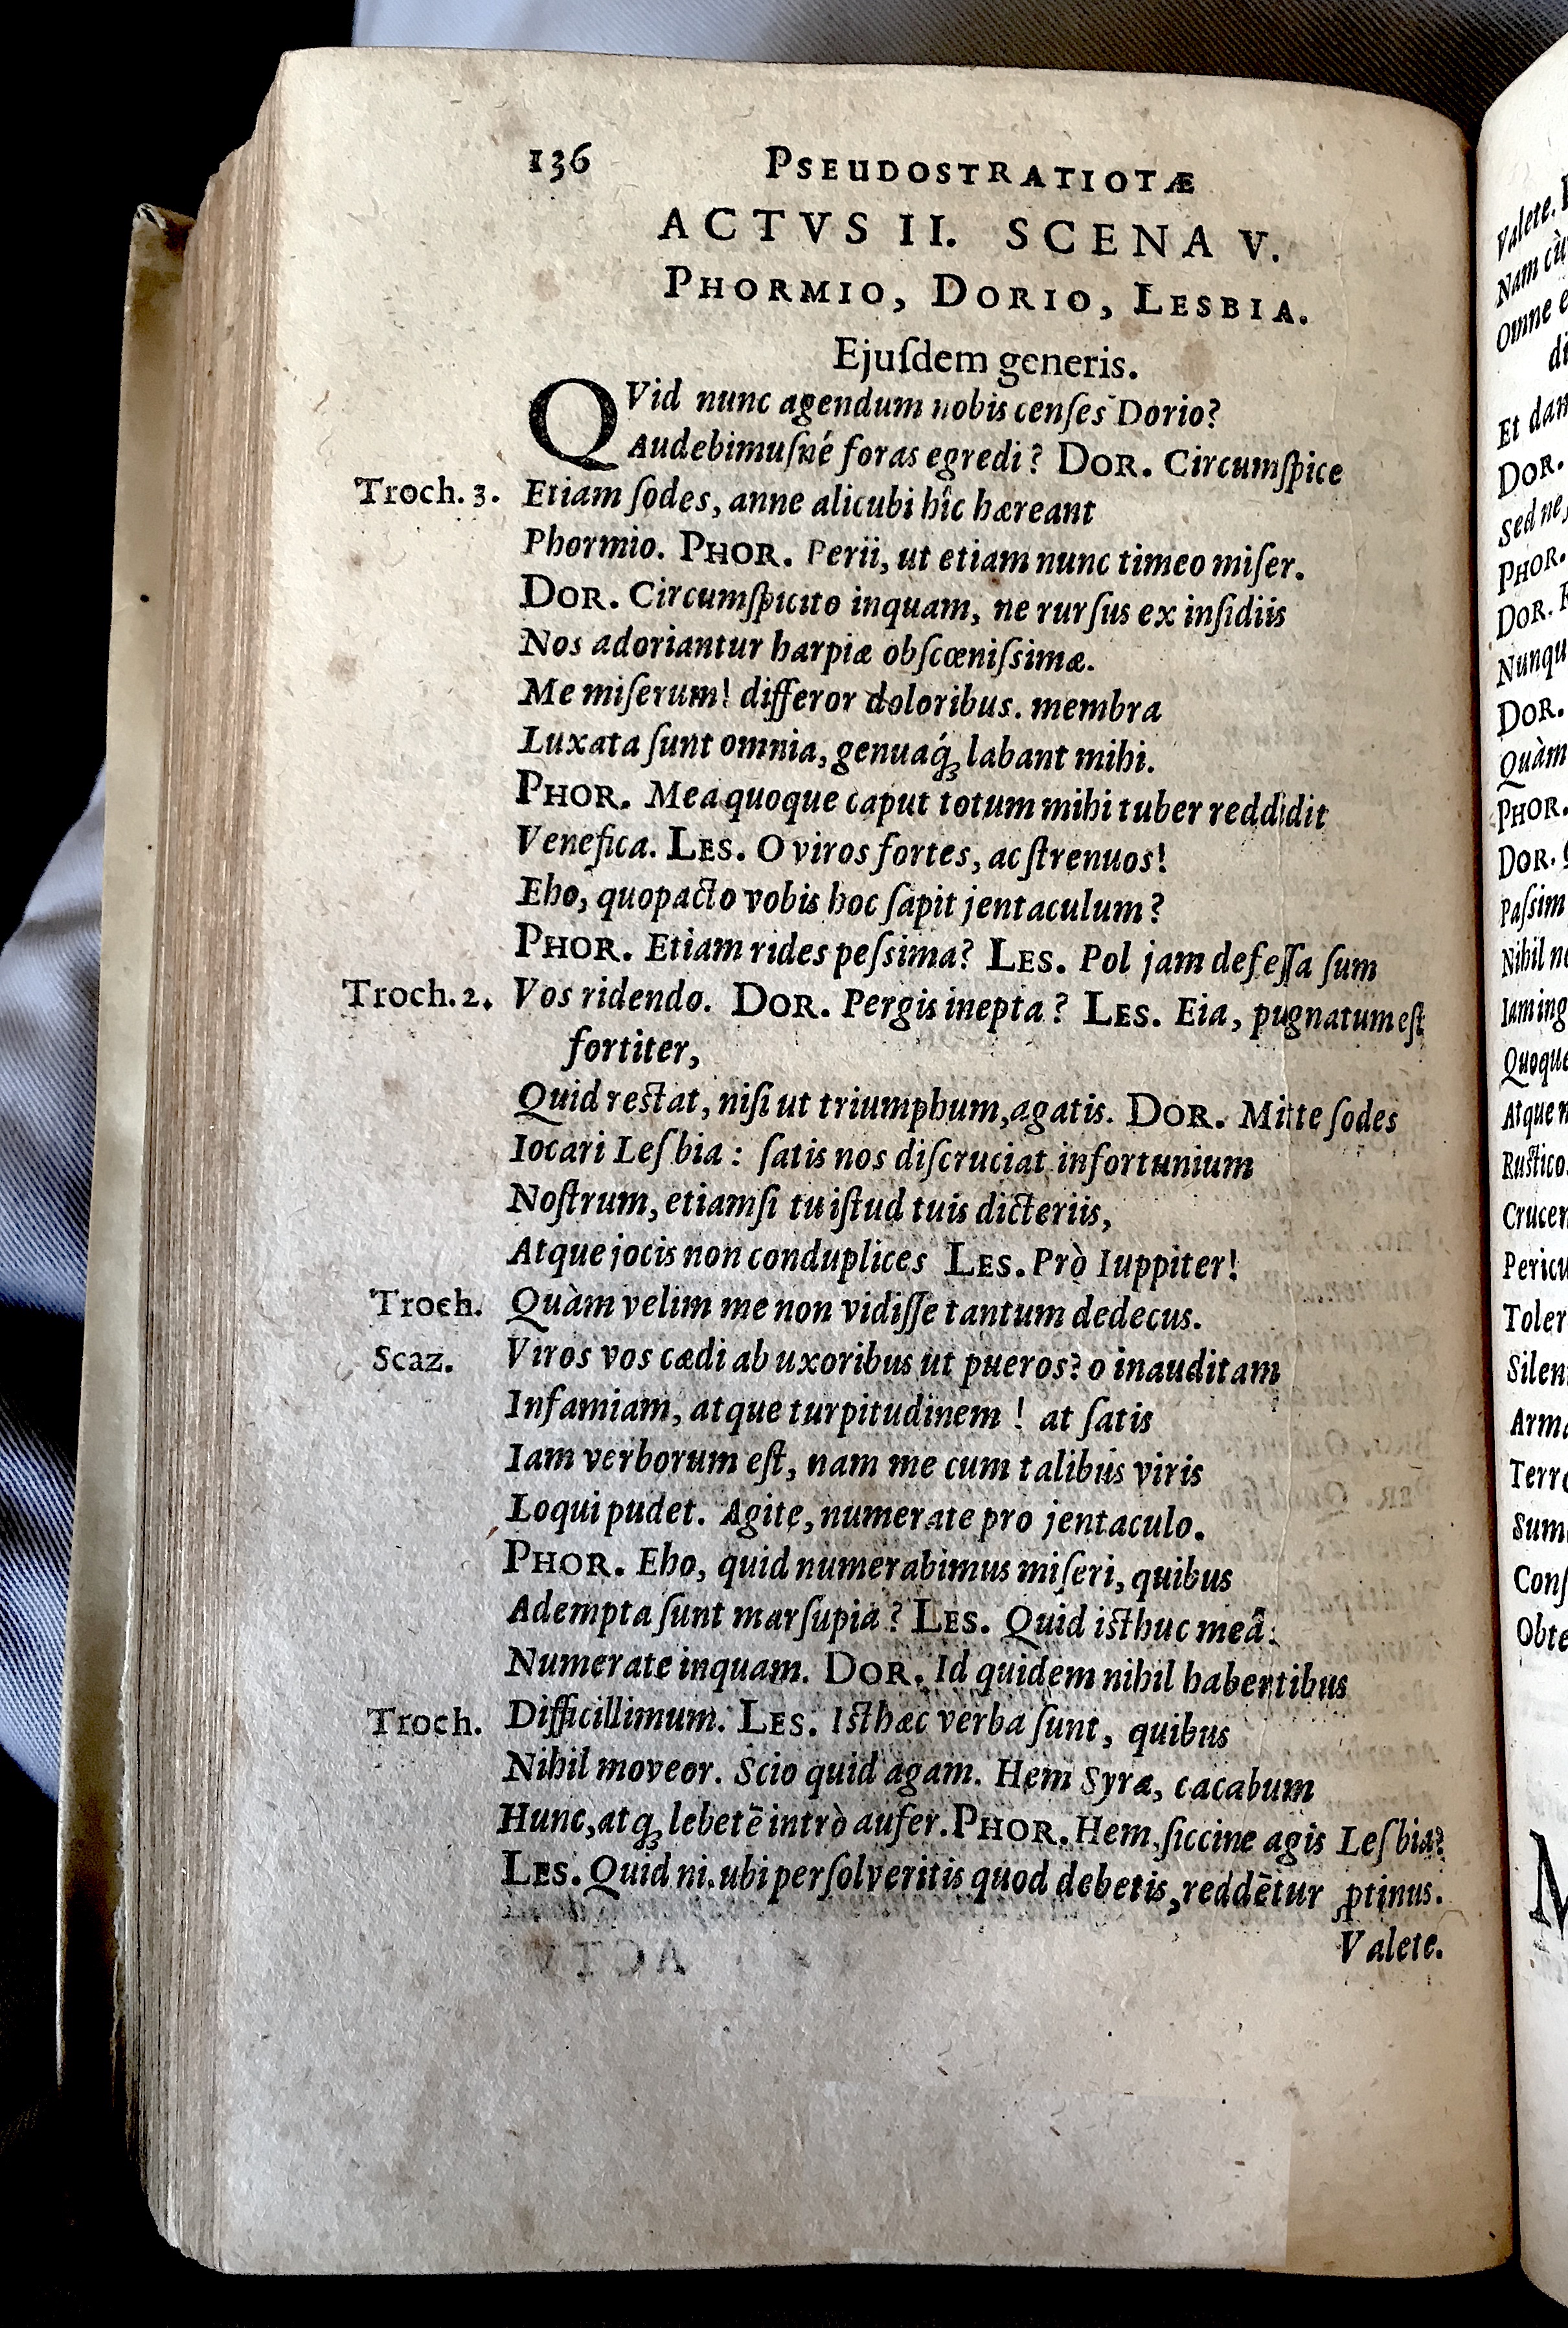 136 PSEUDOSTRATIOTÆ
ACTVS II. SCENA V.
PHORMIO, DORIO, LESBIA.
Ejuſdem generis.
QVid nunc agendum nobis cenſes Dorio?
Audebimuſné foras egredi? DOR. Circumſpice
Troch. 3. Etiam ſodes, anne alicubi hîc hæreant
Phormio. PHOR. Perii, ut etiam nunc timeo miſer.
DOR. Circumſpicito inquam, ne rurſus ex inſidiis
Nos adoriantur harpiæ obſcœniſsimæ.
Me miſerum! differor doloribus. membra
Luxata ſunt omnia, genuaq́ꝫ labant mihi.
PHOR. Mea quoque caput totum mihi tuber reddidit
Venefica. LES. O viros fortes, ac ſtrenuos!
Eho, quopacto vobis hoc ſapit jentaculum?
PHOR. Etiam rides peſsima? LES. Pol jam defeſſa ſum
Troch. 2. Vos ridendo. DOR. Pergis inepta? LES. Eia, pugnatum eſt
fortiter,
Quid restat, niſi ut triumphum, agatis. DOR. Mitte ſodes
Iocari Leſbia: ſatis nos diſcruciat infortunium
Noſtrum, etiamſi tu iſtud tuis dicteriis,
Atque jocis non conduplices LES. Prò Iuppiter!
Troch. Quàm velim me non vidiſſe tantum dedecus.
Scaz. Viros vos cædi ab uxoribus ut pueros? o inauditam
Infamiam, atque turpitudinem! at ſatis
Iam verborum eſt, nam me cum talibus viris
Loqui pudet. Agite, numerate pro jentaculo.
PHOR. Eho, quid numerabimus miſeri, quibus
Adempta ſunt marſupia? LES. Quid isthuc meâ:
Numerate inquam. DOR. Id quidem nihil habentibus
Troch. Difficillimum. LES. Isthæc verba ſunt, quibus
Nihil moveor. Scio quid agam. Hem Syra, cacabum
Hunc, atqꝫ lebetē intrò aufer. PHOR. Hem, ſiccine agis Leſbia?
LES. Quid ni. ubi perſolveritis quod debetis, reddētur ꝓtinus.
Valete.
Valete.
Nam cù
Omne e
di
Et dam
DOR.
Sed ne
PHOR.
DOR.
Nunqu
DOR.
Quàm
PHOR.
DOR.
Paſsim
Nihil ne
Iam ing
Quoque
Atque n
Rustico
Crucer
Pericu
Toler
Silen
Arma
Terro
Sum
Conſ
Obte
M